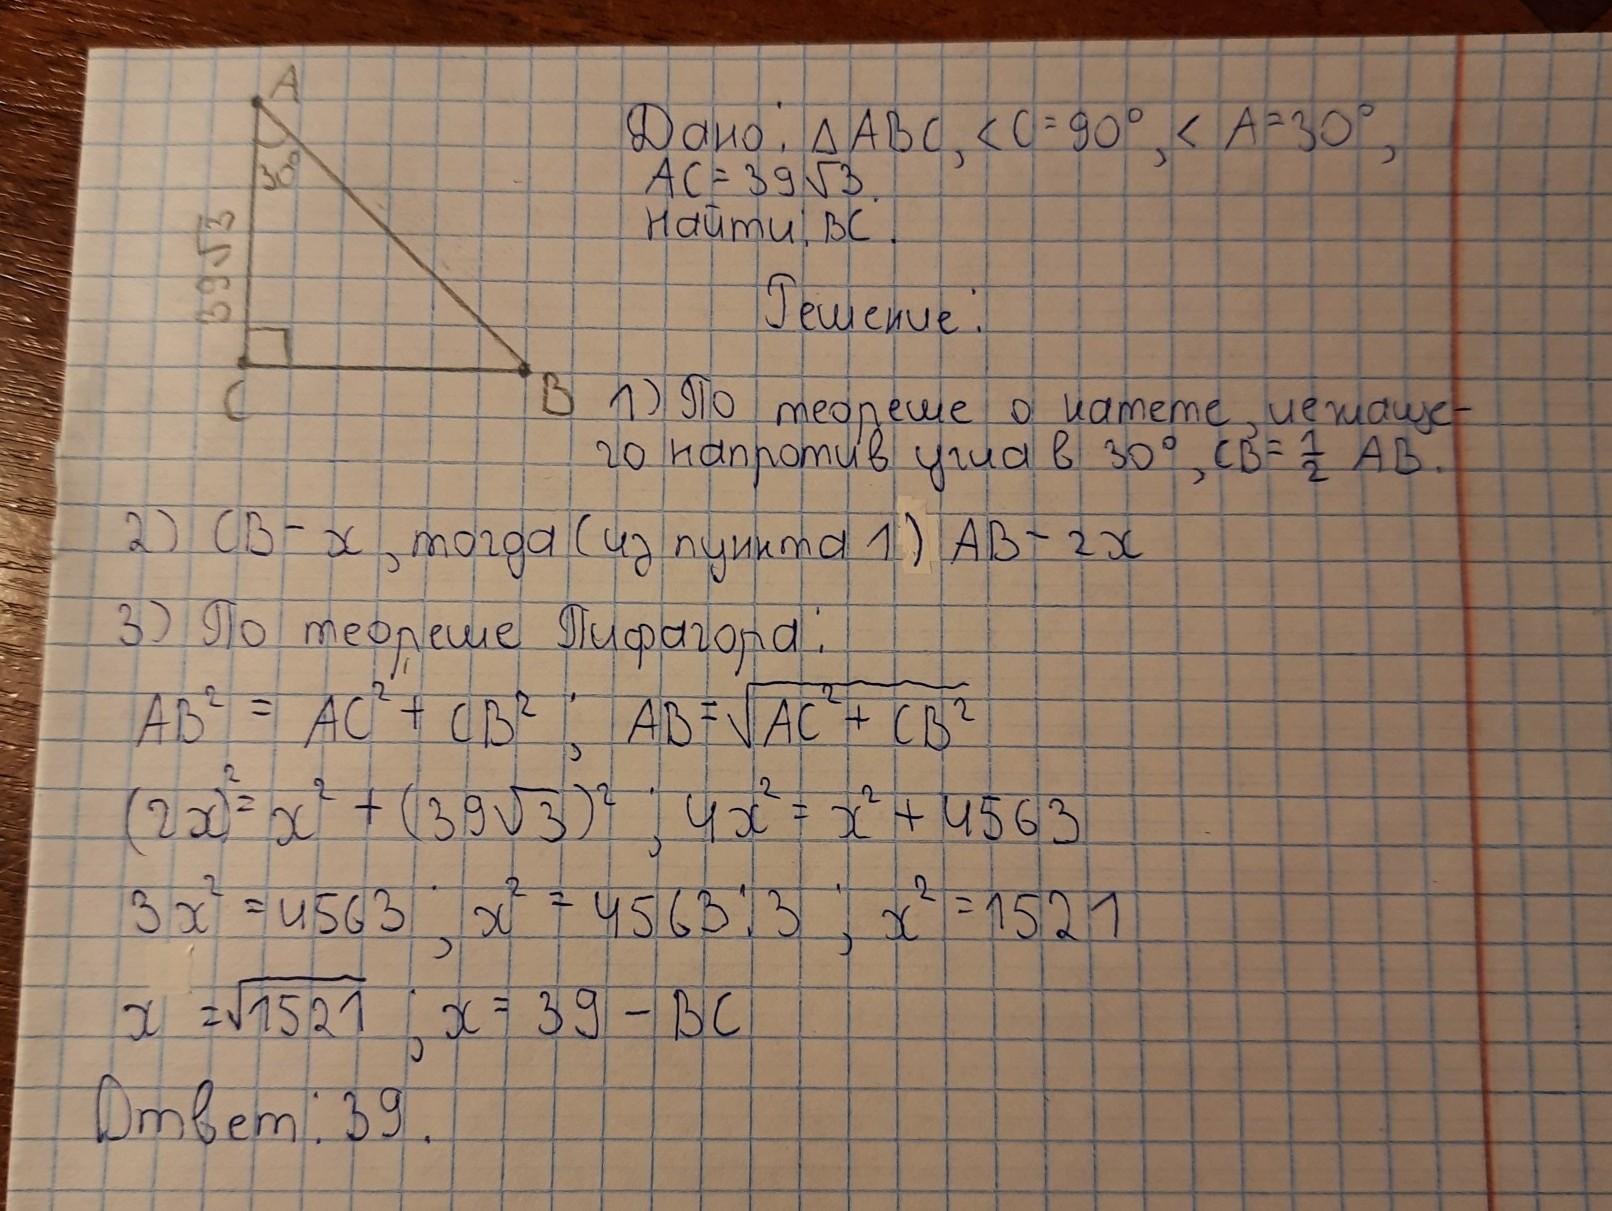 A
30°
39√3
C
B
Дано: △ABC, <C=90°, < A=30°,
AC=39√3.
Найти: BC.
Решение:
1) По теореме о катете, лежаще-
го напротив угла в 30°, CB=½ AB.
2) CB - x, тогда (из пункта 1) AB - 2x
3) По теореме Пифагора:
AB² = AC² + CB² ; AB=√AC²+CB²
(2x)²=x²+(39√3)² ; 4x²=x²+4563
3x²=4563 ; x²=4563:3 ; x²=1521
x =√1521 ; x=39 - BC
Ответ: 39.